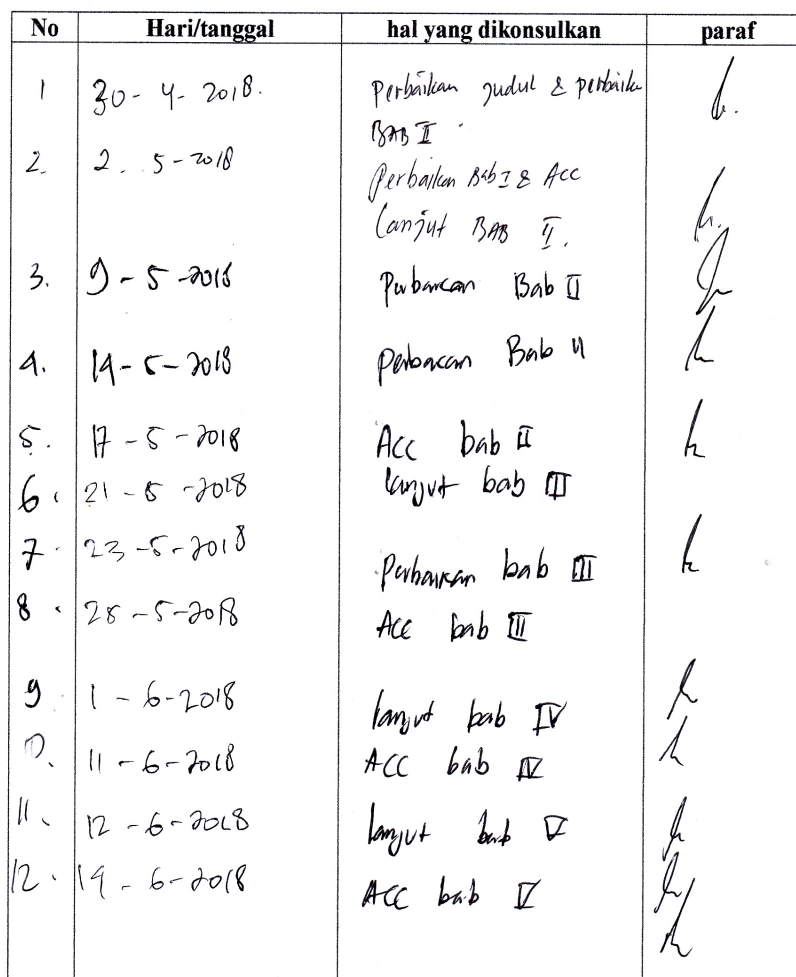 No Hari/tanggal hal yang dikonsulkan paraf
1 30-4-2018. Perbaikan judul & perbaika
BAB II
2. 2. 5-2018 Perbaikan Bab I & Acc
lanjut BAB II.
3. 9-5-2018 Perbaican Bab II
4. 14-5-2018 Perbaican Bab II
5. 17-5-2018 Acc bab II
6. 21-5-2018 lanjut bab III
7. 23-5-2018 Perbaikan bab III
8. 28-5-2018 Acc bab III
9 1-6-2018 lanjut bab IV
10. 11-6-2018 ACC bab IV
11. 12-6-2018 lanjut bab V
12. 19-6-2018 ACC bab V